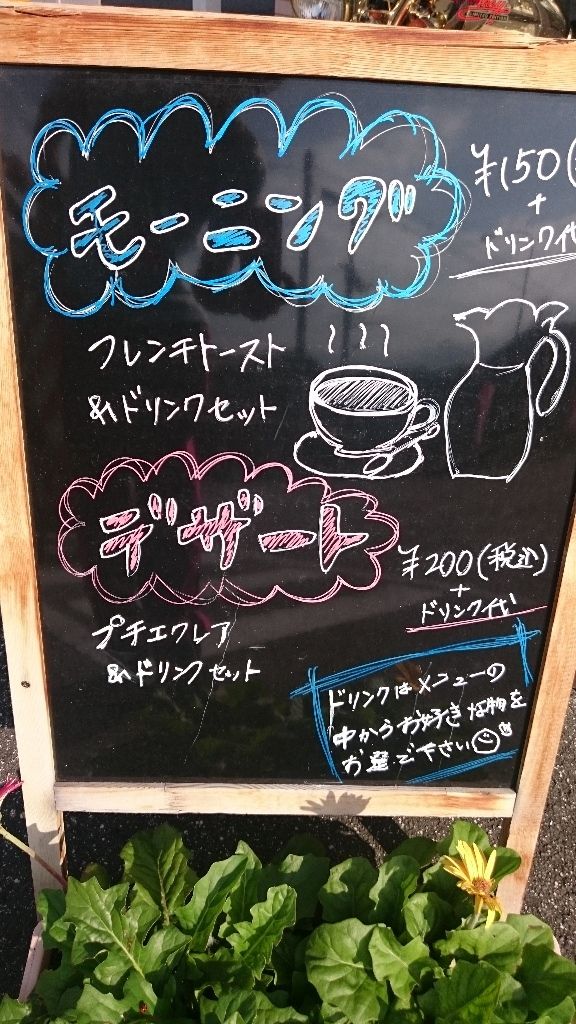 モーニング
¥150(
+
ドリンク代
フレンチトースト
&ドリンクセット
デザート
¥200(税込)
+
ドリンク代
プチエクレア
&ドリンクセット
ドリンクはメニューの
中からお好きな物を
お選び下さい